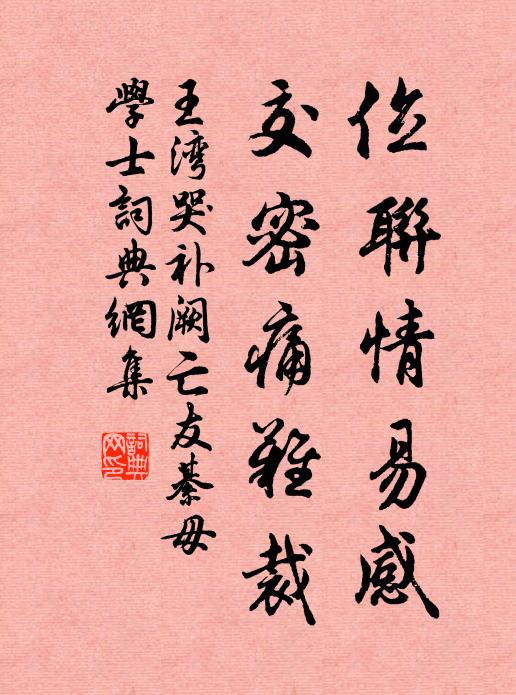 位聯情易感
交密痛難裁
王湾哭补阙亡友綦毋
學士詞典網集
詞典网印